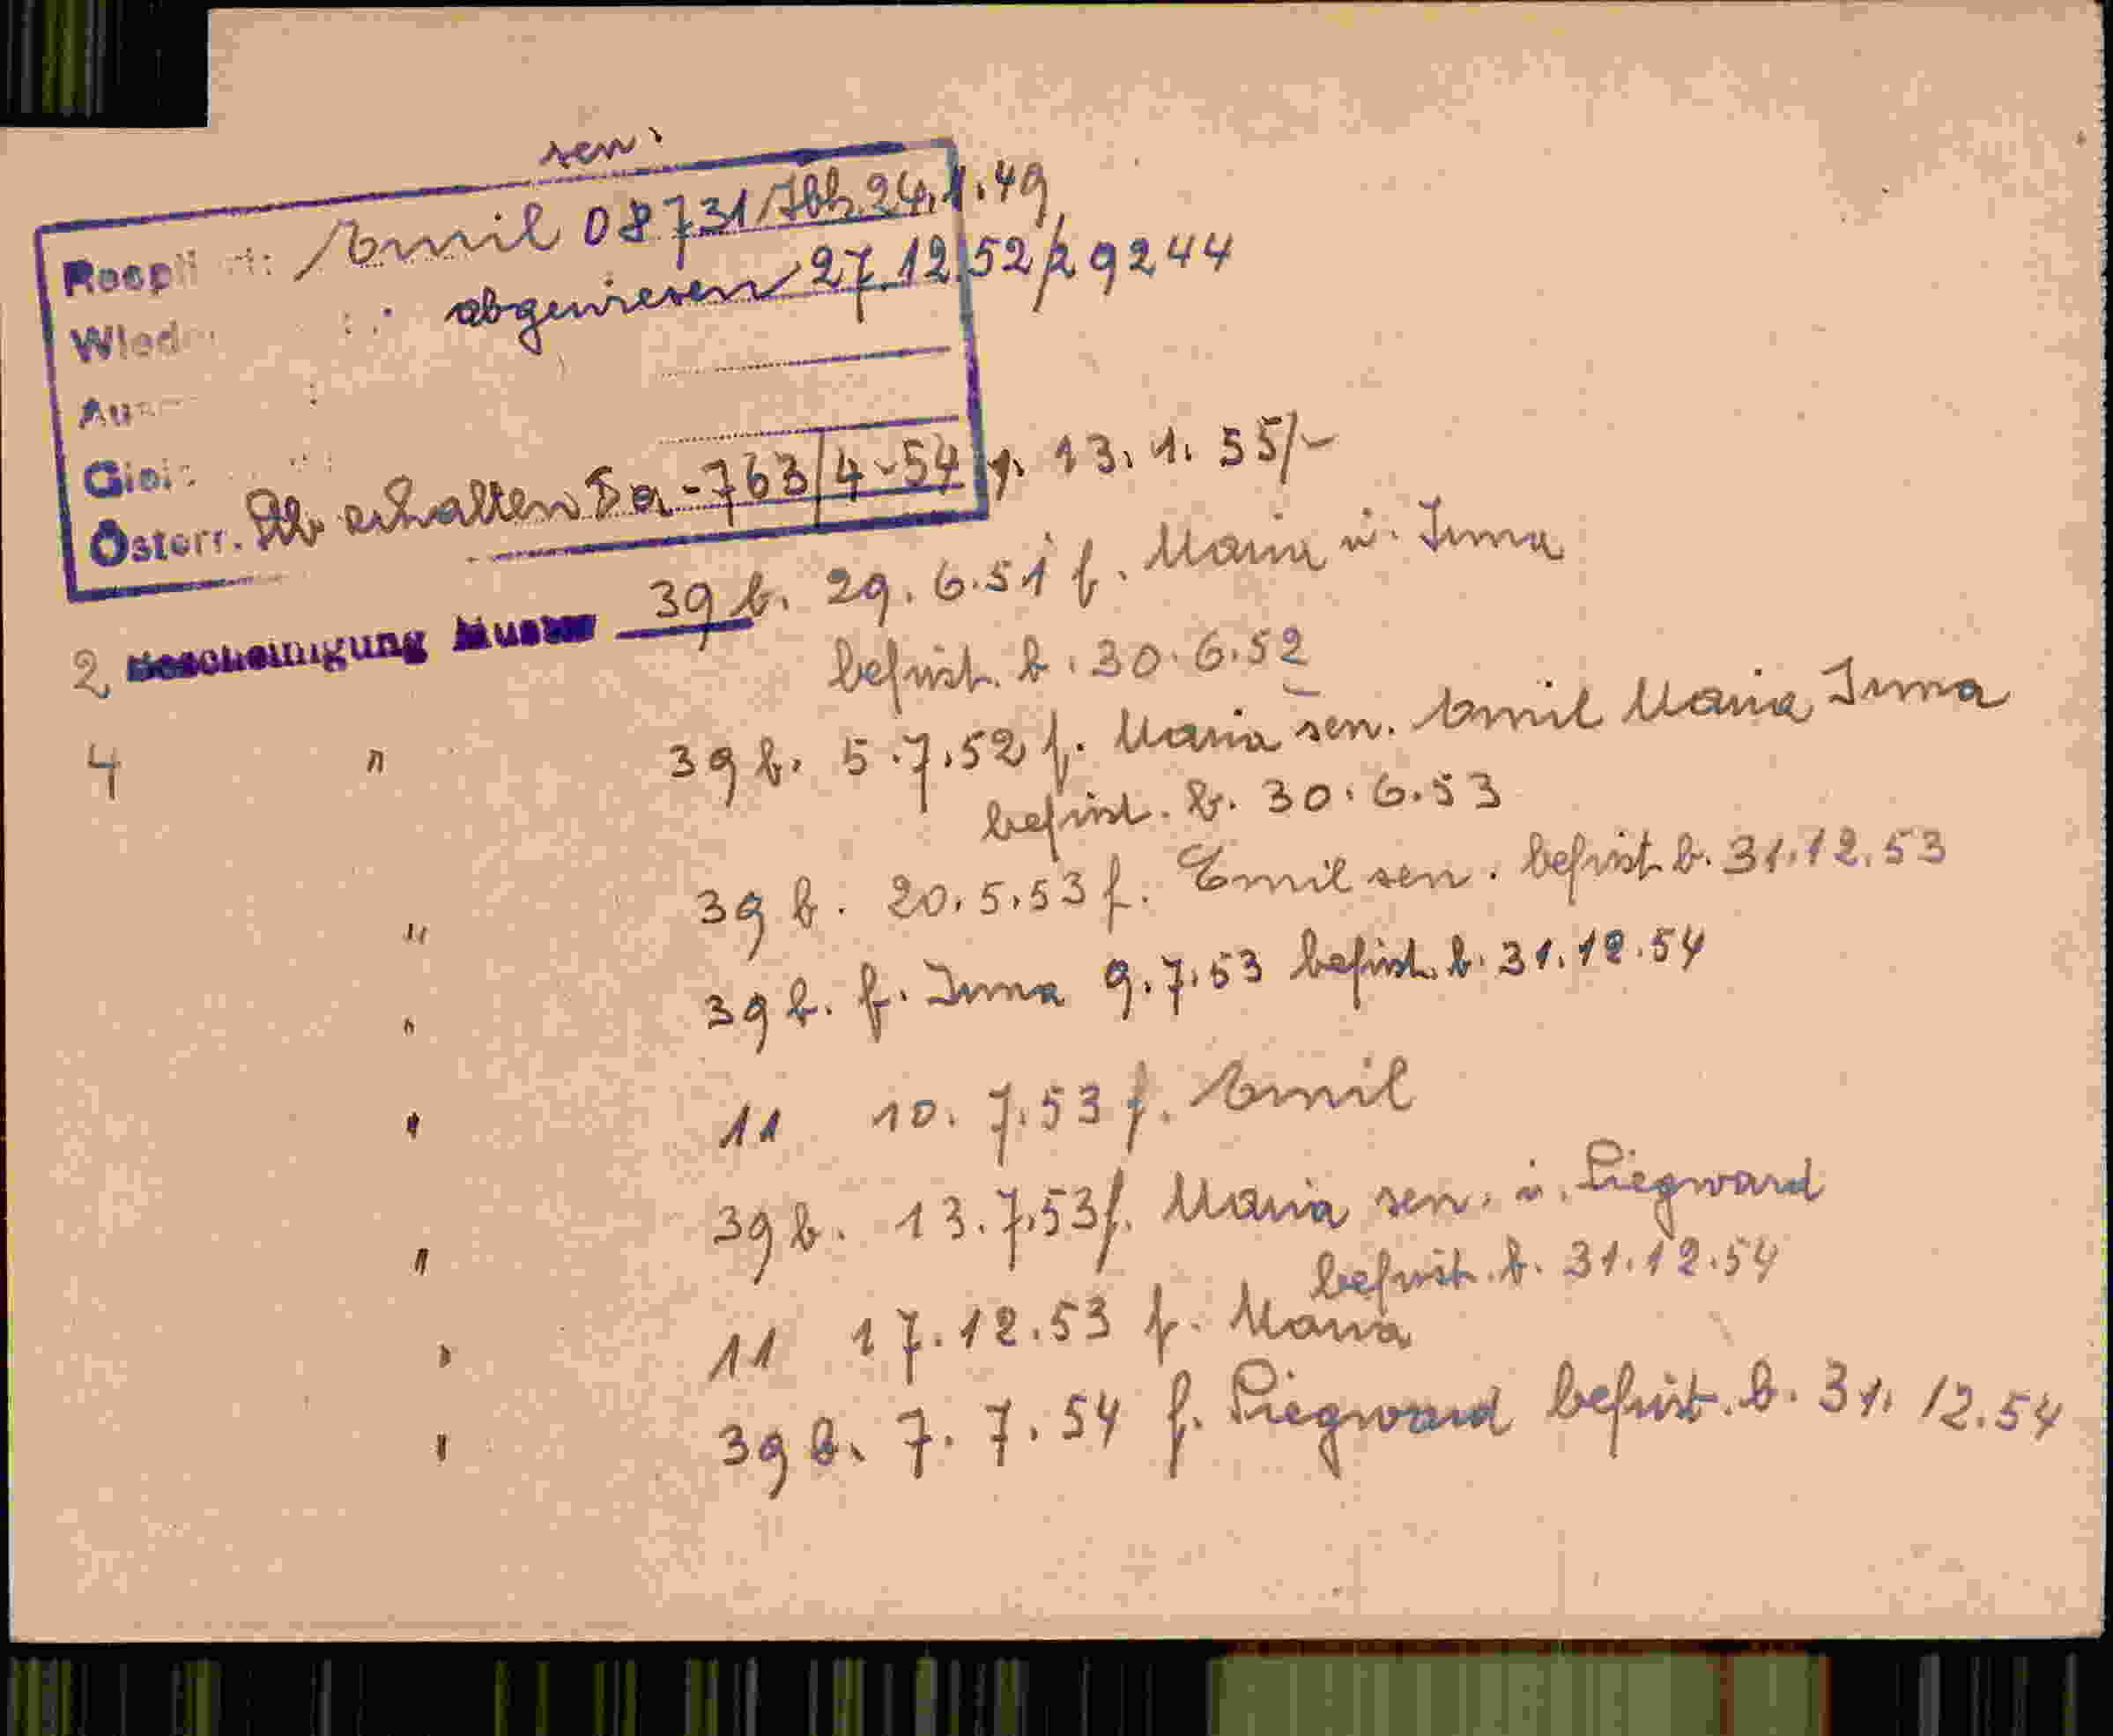 sen.
Emil 08731/ 24.1.49
abgewiesen 27.12.52/29244
Österr. erhalten 763/4-54 13.1.55/-
2 Bescheinigung Muster 39 b. 29.6.51 f. Maria u. Irma
befrist. b. 30.6.52
4 " 39 b. 5.7.52 f. Maria sen. Emil Maria Irma
befrist. b. 30.6.53
" 39 b. 20.5.53 f. Emil sen. befrist. b. 31.12.53
" 39 b. f. Irma 9.7.53 befrist. b. 31.12.54
" 11 10.7.53 f. Emil
" 39 b. 13.7.53 f. Maria sen. u. Siegward
befrist. b. 31.12.54
" 11 17.12.53 f. Maria
" 39 b. 7.7.54 f. Siegward befrist. b. 31.12.54